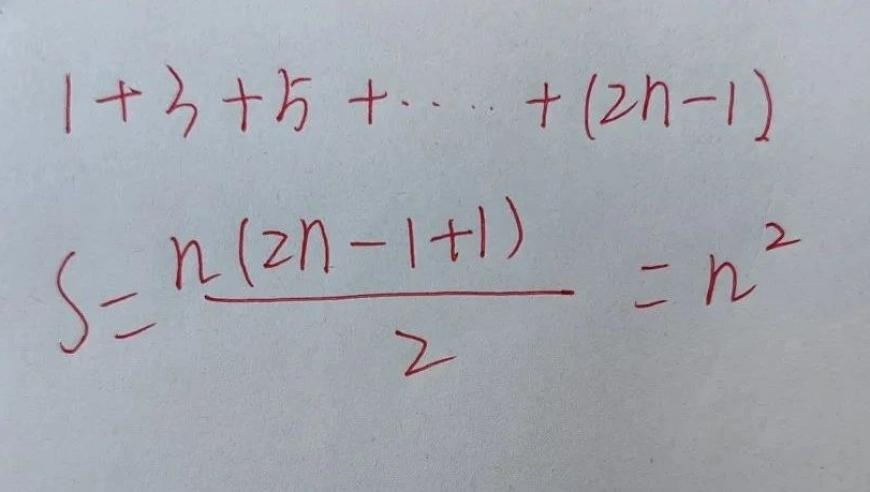 1+3+5+.....+(2n-1)
S=n(2n-1+1)/2=n²